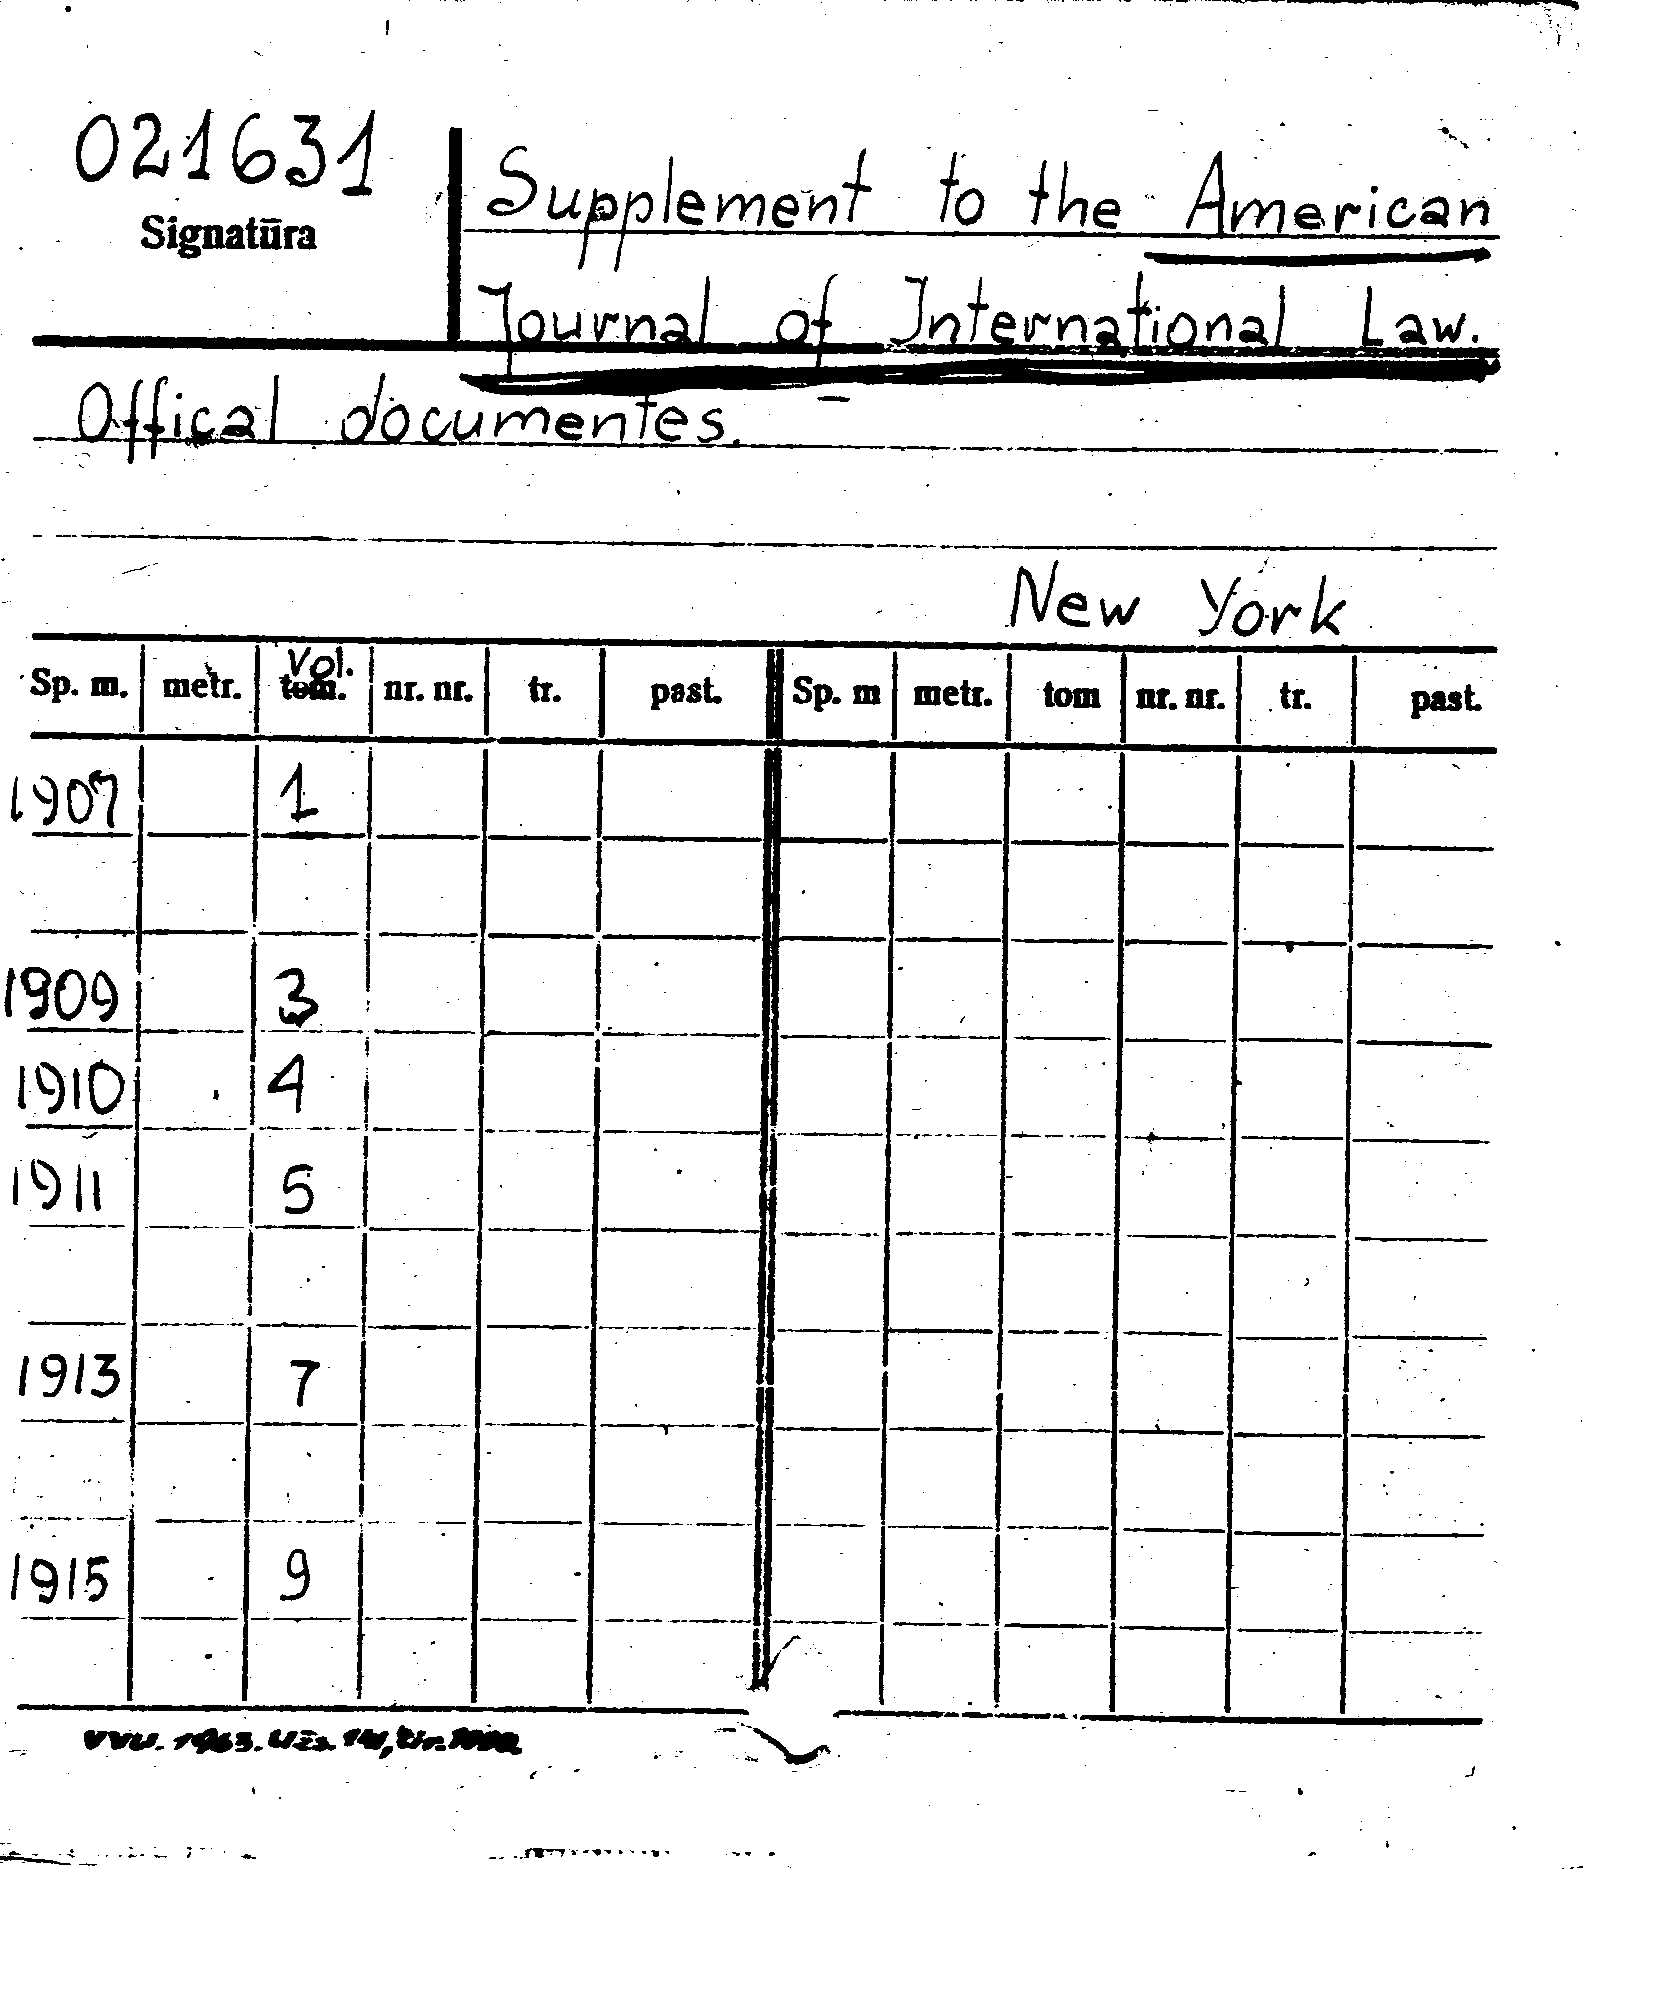 021631
Signatūra
Supplement to the American
Journal of International Law.
Offical documentes.
New York
Vol.
Sp. m. metr. tom. nr. nr. tr. past. Sp. m metr. tom nr. nr. tr. past.
1907 1
1909 3
1910 4
1911 5
1913 7
1915 9
VVU. 1963. Užs. tir.